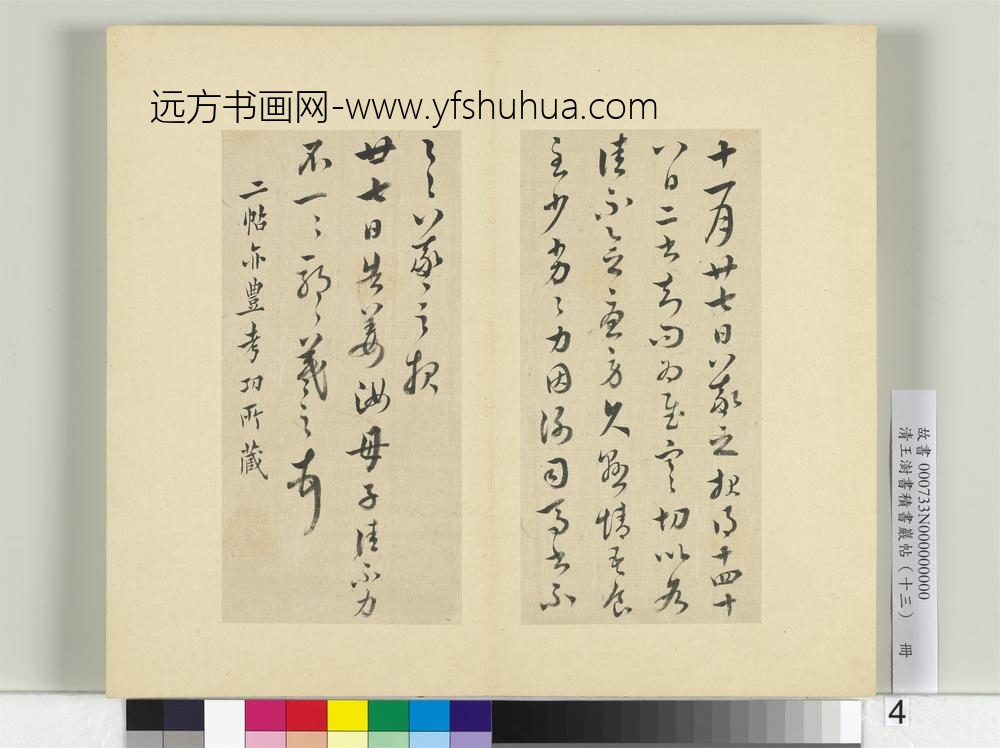 远方书画网-www.yfshuhua.com
十一月廿七日羲之報得十四十
八日二書知問為慰寒切比各
佳不念憂勞久懸情吾食
至少劣劣力因謝司馬書不
一一羲之報
廿七日告姜汝母子佳不力
不一一耶耶羲之
二帖亦豐考功所藏
故書 000733N000000000
清王澍書積書巖帖(十三) 冊
4